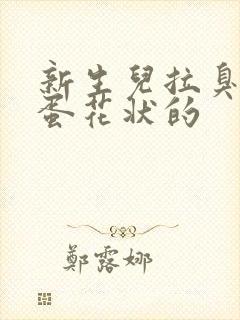 新生兒拉臭
蛋花状的
鄭露娜